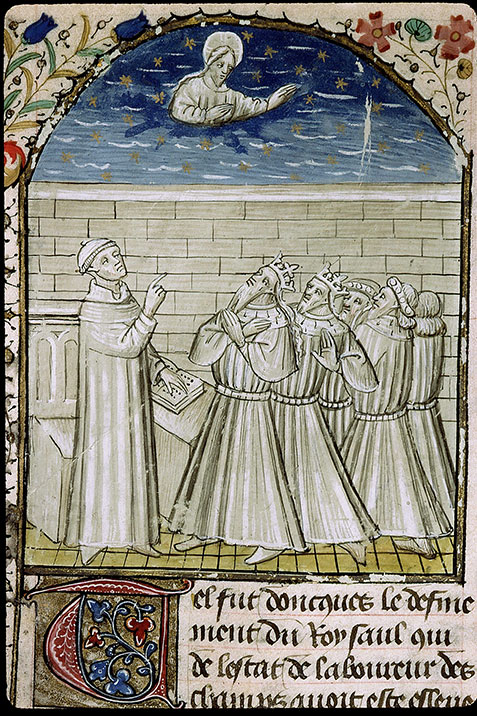 Tel fut doncques le define
ment du Roy saul qui
de lestat de laboureur des
champs auoit este esleue